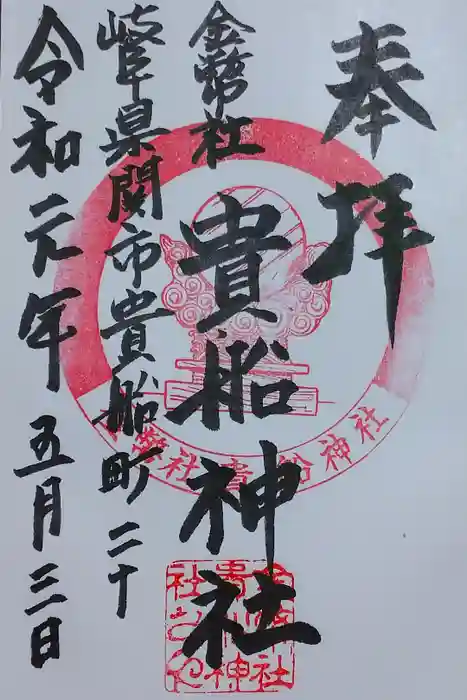 奉拝
金幣社
貴船神社
岐阜県関市貴船町二十
令和元年五月三日
金幣社貴船神社